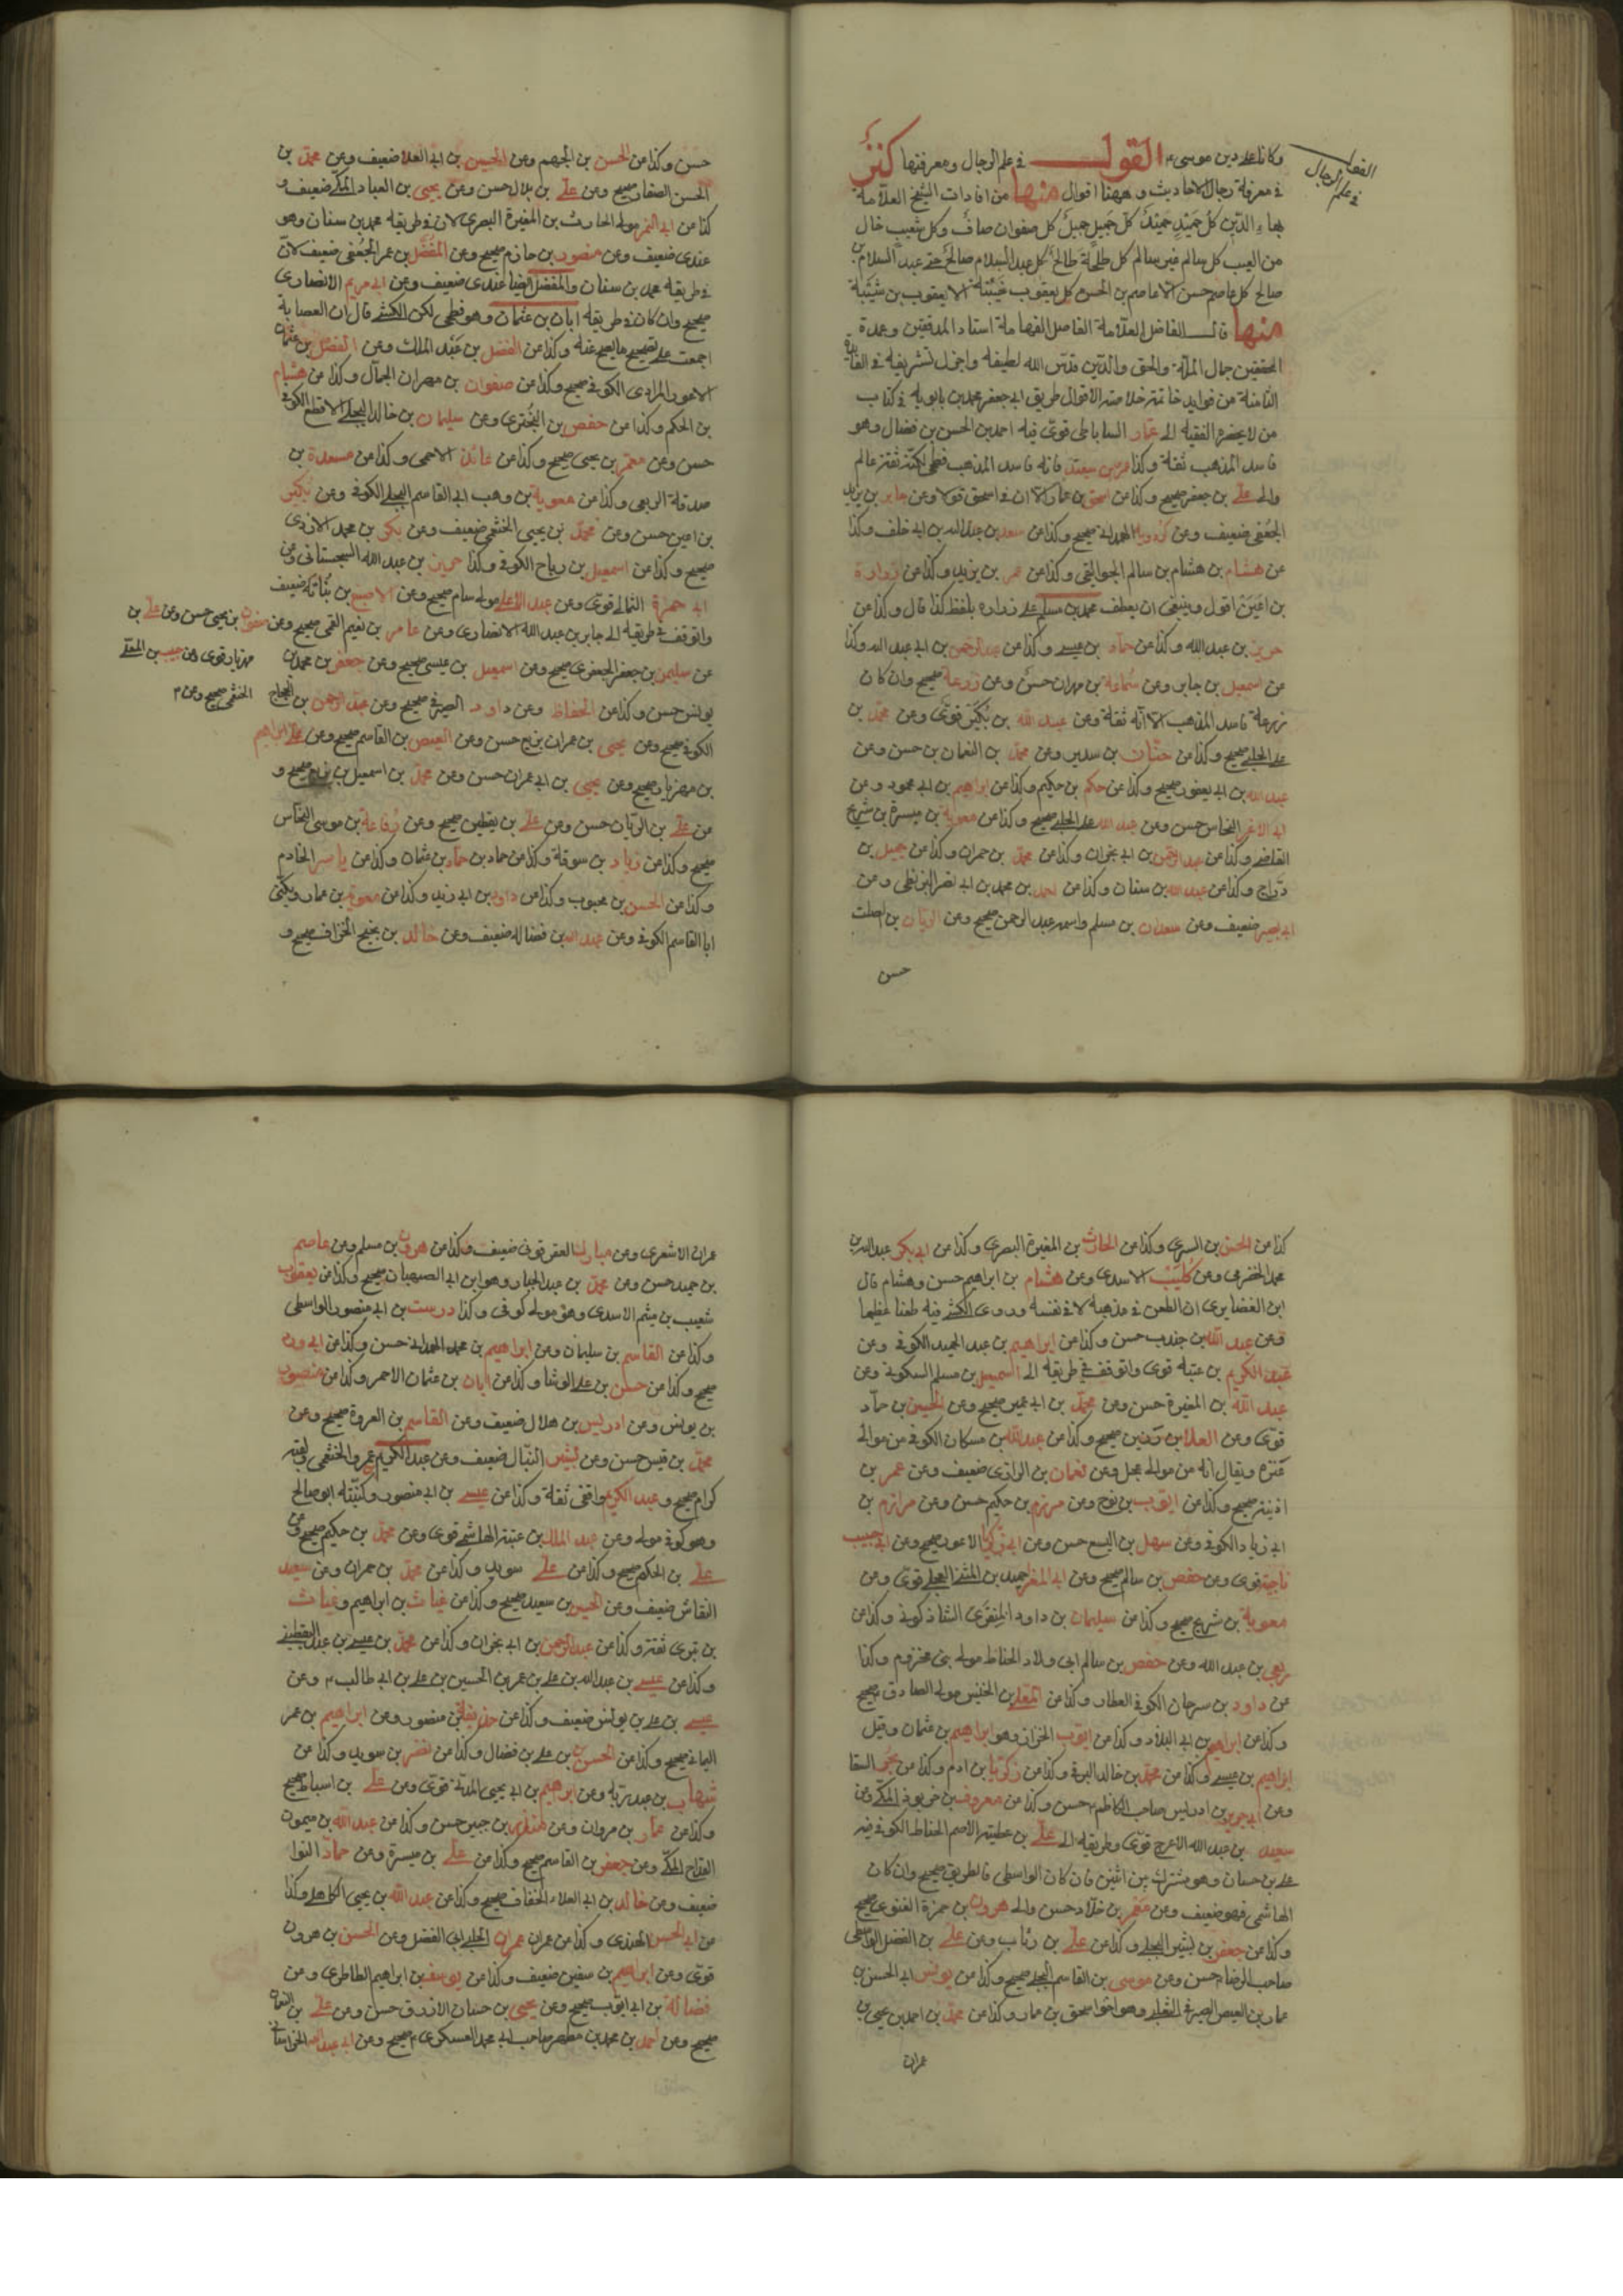 وكانا علا دين موسى ع القول في علم الرجال ومعرفتها كنز
في معرفة رجال الاحاديث وههنا اقوال منها من افادات الشيخ العلامة
بهاء الدين كل حميد حميد كل جميل جميل كل صفوان صاف وكل شعيب خال
من العيب كل سالم غير سالم كل طلحة طالح كل عبد السلام صالح حتى عبد السلام بن
صالح كل عاصم حسن الا عاصم بن الحسن كل يعقوب الا يعقوب بن شيبة
منها قال الفاضل العلامة الفهامة استاد المدققين وعمدة
المحققين جمال الملة والحق والدين قدس الله لطيفه واجزل تشريفه في الفائدة
الثامنة من فوايد خاتمة خلاصة الاقوال طريق ابي جعفر محمد بن بابويه في كتاب
من لا يحضره الفقيه الى عمار الساباطى قوى فيه احمد بن الحسن بن فضال وهو
فاسد المذهب ثقة وكذا عن بن سعيد فانه فاسد المذهب فطحى لكنه ثقة عالم
والى على بن جعفر صحيح وكذا من اسحق بن عمار الا ان في اسحق قولا وعن جابر بن يزيد
الجعفى ضعيف وعن كردويه الهمدانى صحيح وكذا من سعد بن عبد الله بن ابى خلف وكذا
عن هشام بن هشام بن سالم الجواليقى وكذا من عمر بن يزيد وكذا من زرارة
بن اعين اقول وينبغى ان يعطف محمد بن مسلم على زراره بلفظ كذا قال وكذا من
حريز بن عبد الله وكذا من حماد بن عيسى وكذا من عبد الرحمن بن ابى عبد الله وكذا
عن اسمعيل بن جابر وعن سماعة بن مهران حسن وعن زرعة صحيح وان كان
زرعة فاسد المذهب الا انه ثقة وعن عبد الله بن بكير قوى وعن محمد بن
على الحلبى صحيح وكذا من حنان بن سدير وعن محمد بن النعمان بن حسن وعن
عبد الله بن ابى يعفور صحيح وكذا عن حكم بن حكيم وكذا من ابراهيم بن ابى محمود وعن
ابى الاغر النحاس حسن وعن عبد الله على الحلبى صحيح وكذا من معوية بن ميسرة بن شريح
القاضى وكذا من عبد الرحمن بن ابى نجران وكذا من محمد بن حمران وكذا من جميل بن
دراج وكذا من عبد الله بن سنان وكذا من احمد بن محمد بن ابى نصر البزنطى وعن
ابى بصير ضعيف وعن سعدان بن مسلم واسمه عبد الرحمن صحيح وعن الريان بن الصلت
حسن
في علم الرجال
حسن وكذا من الحسن بن الجهم وعن الحسين بن ابى العلا ضعيف وعن محمد بن
الحسن الصفار صحيح وعن على بن بلال حسن وعن يحيى بن العباد المكى ضعيف و
كذا من ابى النمر مولى الحارث بن المغيرة البصرى لان في طريقه محمد بن سنان وهو
عندى ضعيف وعن منصور بن حازم صحيح وعن المفضل بن عمر الجعفى ضعيف لان
في طريقه محمد بن سنان والمفضل ايضا عندى ضعيف وعن ابى مريم الانصارى
صحيح وان كان في طريقه ابان بن عثمان وهو فطحى لكن الكشى قال ان العصابة
اجمعت على تصحيح ما يصح عنه وكذا من الفضل بن عبد الملك وعن الفضل بن عثمان
الاعور المرادى الكوفى صحيح وكذا من صفوان بن مهران الجمال وكذا من هشام
بن الحكم وكذا من حفص بن البخترى وعن سليمان بن خالد البجلى الاقطع الكوفى
حسن وعن معمر بن يحيى صحيح وكذا من عائذ الاحمسى وكذا من مسعدة بن
صدقة الربعى وكذا من معوية بن وهب ابى القاسم البجلى الكوفى وعن بكير
بن اعين حسن وعن محمد بن يحيى الخثعمى ضعيف وعن بكر بن محمد الازدى
صحيح وكذا من اسمعيل بن رباح الكوفى وكذا حريز بن عبد الله السجستانى وعن
ابى حمزة الثمالى قوى وعن عبد الاعلى مولى سام صحيح وعن الاصبغ بن نباتة ضعيف
واتوقف في طريقه الى جابر بن عبد الله الانصارى وعن عامر بن نعيم القمى صحيح وعن
عن سليمن بن جعفر الجعفرى صحيح وعن اسمعيل بن عيسى صحيح وعن جعفر بن محمد بن
يونس حسن وكذا من الحفاظ وعن داود الصيرفى صحيح وعن عبد الرحمن بن الحجاج
الكوفى صحيح وعن يحيى بن عمران بن حسن وعن العيص بن القاسم صحيح وعن على ابراهيم
بن مهزيار صحيح وعن يحيى بن ابى عمران حسن وعن محمد بن اسمعيل بن بزيع صحيح و
من على بن الريان حسن وعن على بن يقطين صحيح وعن رفاعة بن موسى النخاس
صحيح وكذا من زياد بن سوقة وكذا من حماد بن عثمان وكذا من ياسر الخادم
وكذا من الحسن بن محبوب وكذا من داود بن ابى زيد وكذا من معوية بن عمار ويكنى
ابا القاسم الكوفى وعن عبد الله بن فضاله ضعيف وعن خالد بن نجيح الخزاف صحيح و
صفوان بن يحيى حسن وعن على بن
مهزيار قوى وعن حبيب بن المعلى
الخثعمى صحيح وعن
كذا من الحسن بن السرى وكذا من الحارث بن المغيرة البصرى وكذا من ابى بكر عبد الله بن
محمد الحضرمى وعن كليب الاسدى وعن هشام بن ابراهيم حسن وهشام قال
ابن الغضايرى ان الطعن في مذهبه لا في نفسه وروى الكشى فيه طعنا عظيما
وعن عبد الله بن جندب حسن وكذا من ابراهيم بن عبد الحميد الكوفى وعن
عبد الكريم بن عتبه قوى واتوقف في طريقه الى اسمعيل بن مسلم السكونى وعن
عبد الله بن المغيرة حسن وعن محمد بن ابى عمير صحيح وعن الحسين بن حماد
قوى وعن العلا بن رزين صحيح وكذا من عبد الله بن مسكان الكوفى من موالى
عنزه ويقال انه من موالى عجل وعن نعمان بن الرازى ضعيف وعن عمر بن
اذينه صحيح وكذا من ايوب بن نوح وعن مرازم بن حكيم حسن وعن مرازم بن
ابى زياد الكوفى وعن سهل بن اليسع حسن وعن ابى زكريا الاعور صحيح وعن ابى حبيب
ناجية قوى وعن حفص بن سالم صحيح وعن ابى المغرا حميد بن المثنى العجلى قوى وعن
معوية بن شريح صحيح وكذا من سليمان بن داود المنقرى الشاذكونى وكذا من
ربعى بن عبد الله وعن حفص بن سالم ابى ولاد الحناط مولى بنى مخزوم وكذا
عن داود بن سرحان الكوفى العطار وكذا من المعلى بن الخنيس مولى الصادق صحيح
وكذا من ابراهيم بن ابى البلاد وكذا من ايوب الخزاز وهو ابراهيم بن عثمان وقيل
ابراهيم بن عيسى وكذا من محمد بن خالد البرقى وكذا من زكريا بن ادم وكذا من بحر السقا
وعن ابى جرير بن ادريس صاحب الكاظم ع حسن وكذا من معروف بن خربوذ المكى وعن
سعيد بن عبد الله الاعرج قوى وطريقه الى على بن عطيه الاصم الحناط الكوفى فيه
على بن حسان وهو مشترك بين اثنين فان كان الواسطى فالطريق صحيح وان كان
الهاشمى فهو ضعيف وعن معمر بن خلاد حسن والى هرون بن حمزة الغنوى صحيح
وكذا من جعفر بن بشير البجلى وكذا من على بن رئاب وعن على بن الفضل الواسطى
صاحب الرضا ع حسن وعن موسى بن القاسم البجلى صحيح وكذا من يونس ابى الحسن بن
عمار بن العيص الصيرفى التغلبى وهو اخو اسحق بن عمار وكذا من محمد بن احمد بن يحيى بن
عمران
عمران الاشعرى وعن مبارك العقرقوفى ضعيف وكذا من هرون بن مسلم وعن عاصم
بن حميد حسن وعن محمد بن عبد الجبار وهو ابن ابى الصهبان صحيح وكذا من يعقوب
شعيب بن ميثم الاسدى وهو مولى كوفى وكذا درست بن ابى منصور الواسطى
وكذا من القاسم بن سليمان وعن ابراهيم بن محمد الهمدانى حسن وكذا من ابى ورد
صحيح وكذا من حسن بن على الوشا وكذا من ابان بن عثمان الاحمر وكذا من منصور
بن يونس وعن ادريس بن هلال ضعيف وعن القاسم بن العروة صحيح وعن
محمد بن قيس حسن وعن بشير النبال ضعيف وعن عبد الكريم عمرو الخثعمى ولقبه
كرام صحيح وعبد الكريم واقفى ثقة وكذا من عيسى بن ابى منصور وكنيته ابو صالح
وهو كوفى مولى وعن عبد الملك بن عتبة الهاشمى قوى وعن محمد بن حكيم صحيح وعن
على بن الحكم صحيح وكذا من على سويد وكذا من محمد بن حمران وعن سعيد
النقاش ضعيف وعن الحسين بن سعيد صحيح وكذا من غياث بن ابراهيم وغياث
بن بترى ثقة وكذا من عبد الرحمن بن ابى نجران وكذا من محمد بن عيسى بن عبد اليقطينى
وكذا من عيسى بن عبد الله بن على بن عمر بن الحسين بن على بن ابى طالب ع وعن
عيسى بن على بن يونس ضعيف وكذا من حذيفة بن منصور وعن ابراهيم بن عمر
اليمانى صحيح وكذا من الحسن بن على بن فضال وكذا من نضر بن سويد وكذا من
شهاب بن عبد ربه وعن ابراهيم بن ابى يحيى المدنى قوى وعن على بن اسباط صحيح
وكذا من عمار بن مروان وعن بن جبير حسن وكذا من عبد الله بن ميمون
القداح المكى وعن جعفر بن القاسم صحيح وكذا من على بن ميسرة وعن حماد النوا
ضعيف وعن خالد بن ابى العلاء الخفاف صحيح وكذا من عبد الله بن يحيى الكاهلى وكذا
من ابى الحسن النهدى وكذا من عمران الحلبى ابى الفضل وعن الحسن بن هرون
قوى وعن ابراهيم بن سفين ضعيف وكذا من يوسف بن ابراهيم الطاطرى وعن
فضالة بن ابى ايوب صحيح وعن يحيى بن حسان الازرق حسن وعن على بن النعمان
صحيح وعن احمد بن محمد بن مطهر صاحب ابى محمد العسكرى ع صحيح وعن ابى عبد الله الخراسانى